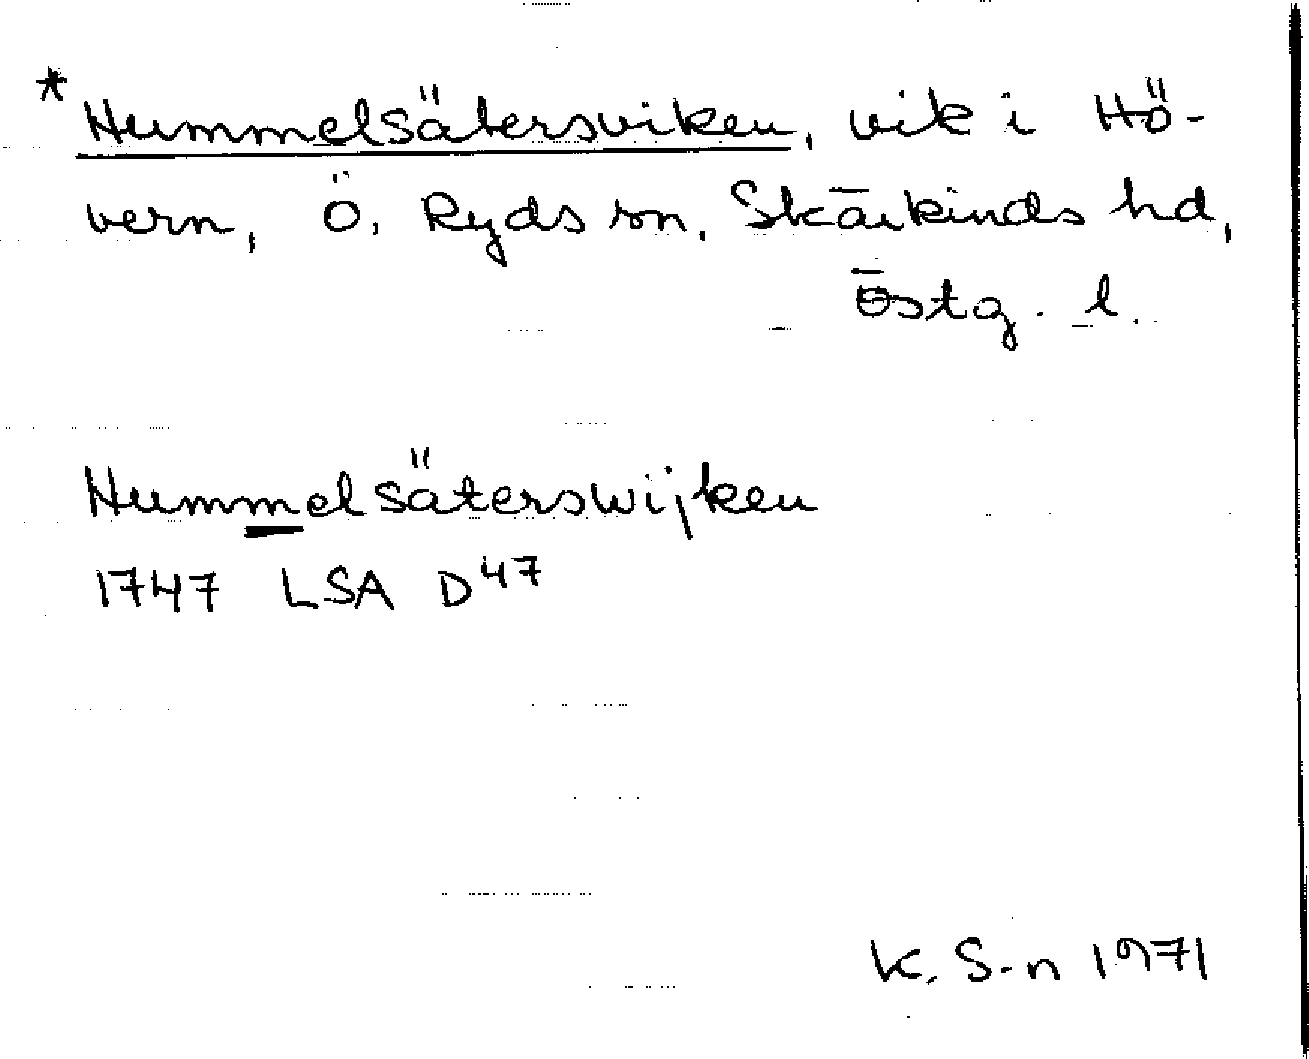 * Hummelsätersviken, vik i Hö-
vern, Ö. Ryds sn, Skärkinds hd,
Östg. l.
Hummelsäterswijken
1747 LSA D47
K. S-n 1971